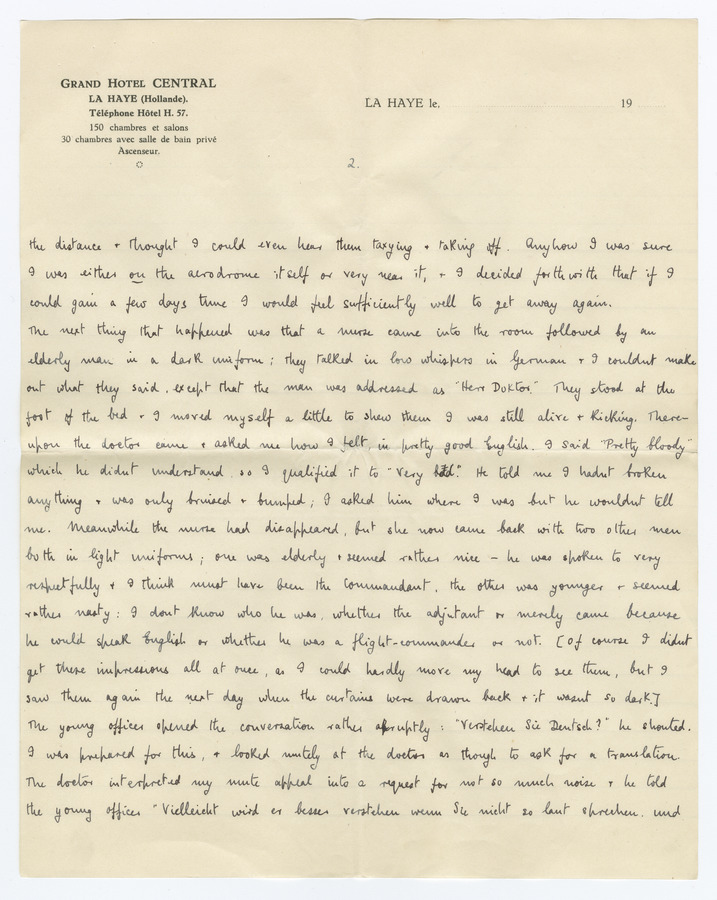 GRAND HOTEL CENTRAL
LA HAYE (Hollande).
Téléphone Hôtel H. 57.
150 chambres et salons
30 chambres avec salle de bain privé
Ascenseur.
LA HAYE le, 19
2.
the distance + thought I could even hear them taxying + taking off. Anyhow I was sure
I was either on the aerodrome itself or very near it, + I decided forthwith that if I
could gain a few days time I would feel sufficiently well to get away again.
The next thing that happened was that a nurse came into the room followed by an
elderly man in a dark uniform; they talked in low whispers in German + I couldnt make
out what they said, except that the man was addressed as "Herr Doktor." They stood at the
foot of the bed + I moved myself a little to shew them I was still alive + kicking. There-
upon the doctor came + asked me how I felt, in pretty good English. I said "Pretty bloody"
which he didnt understand so I qualified it to "very bad." He told me I hadnt broken
anything + was only bruised + bumped; I asked him where I was but he wouldnt tell
me. Meanwhile the nurse had disappeared, but she now came back with two other men
both in light uniforms; one was elderly + seemed rather nice – he was spoken to very
respectfully + I think must have been the Commandant, the other was younger + seemed
rather nasty: I dont know who he was, whether the adjutant or merely came because
he could speak English or whether he was a flight-commander or not. [Of course I didnt
get these impressions all at once, as I could hardly move my head to see them, but I
saw them again the next day when the curtains were drawn back + it wasnt so dark.]
The young officer opened the conversation rather abruptly: "Verstehen Sie Deutsch?" he shouted.
I was prepared for this, + looked mutely at the doctor as though to ask for a translation.
The doctor interpreted my mute appeal into a request for not so much noise + he told
the young officer "Vielleicht wird er besser verstehen wenn Sie nicht so laut sprechen, und